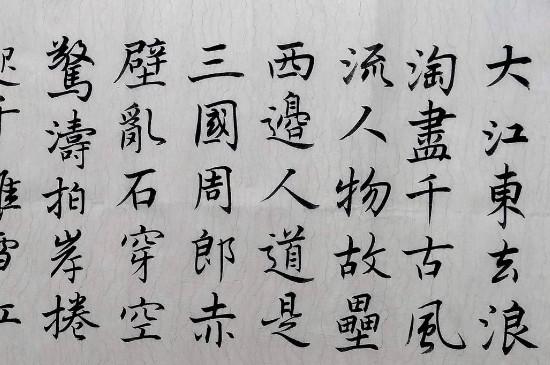 大江東去浪
淘盡千古風
流人物故壘
西邊人道是
三國周郎赤
壁亂石穿空
驚濤拍岸捲